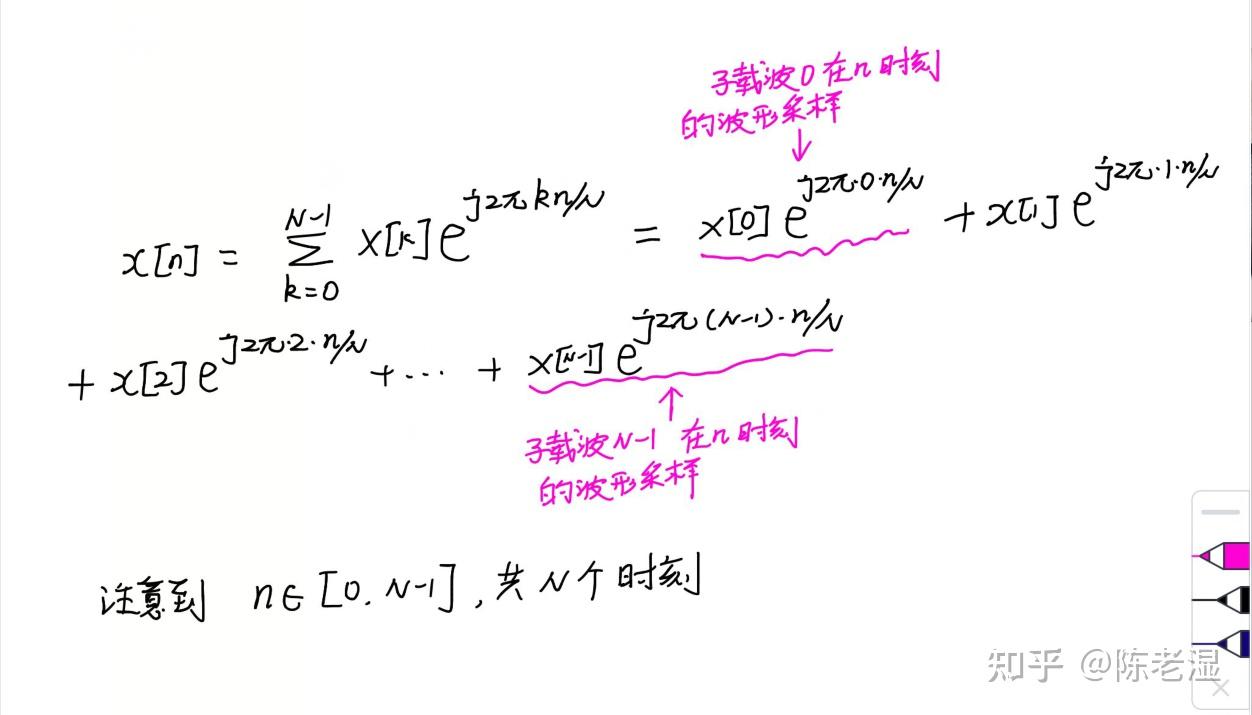 子载波0在n时刻
的波形采样
↓
x[n] = ∑_{k=0}^{N-1} X[k]e^{j2πkn/N} = X[0]e^{j2π·0·n/N} + X[1]e^{j2π·1·n/N}
+ X[2]e^{j2π·2·n/N} + ... + X[N-1]e^{j2π(N-1)·n/N}
↑
子载波N-1 在n时刻
的波形采样
注意到 n∈[0, N-1], 共N个时刻
知乎 @陈老湿